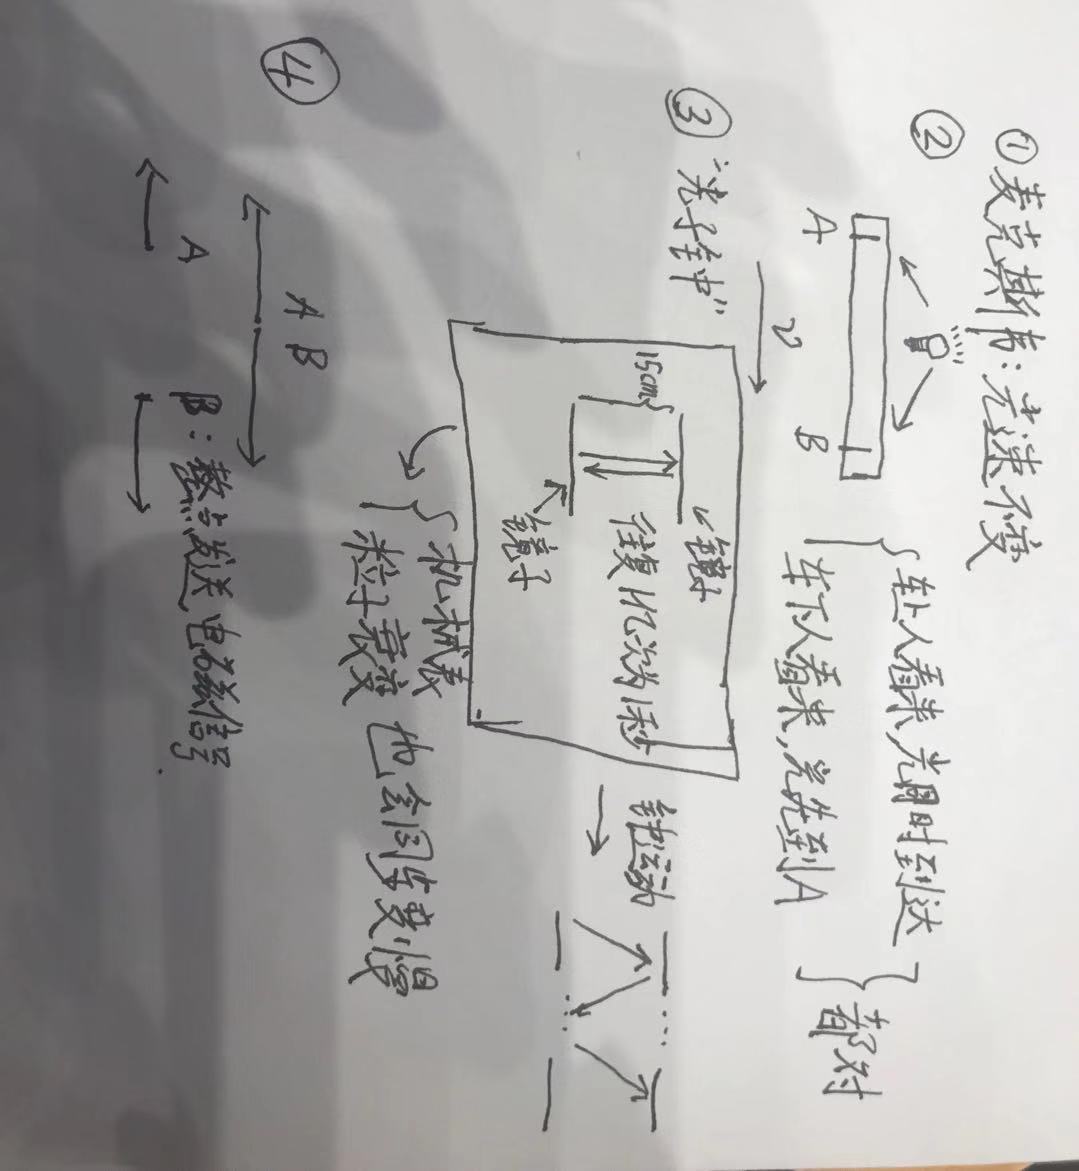 ①麦克斯韦:光速不变
②
车上人看来,光同时到达
车下人看来,光先到A
都对
A
B
v
③“光子钟”
镜子
15cm
往复1亿次为1秒
镜子
钟运动
机械表
粒子衰变
也会同步变慢
④
A B
A
B:整点发送电磁信号.